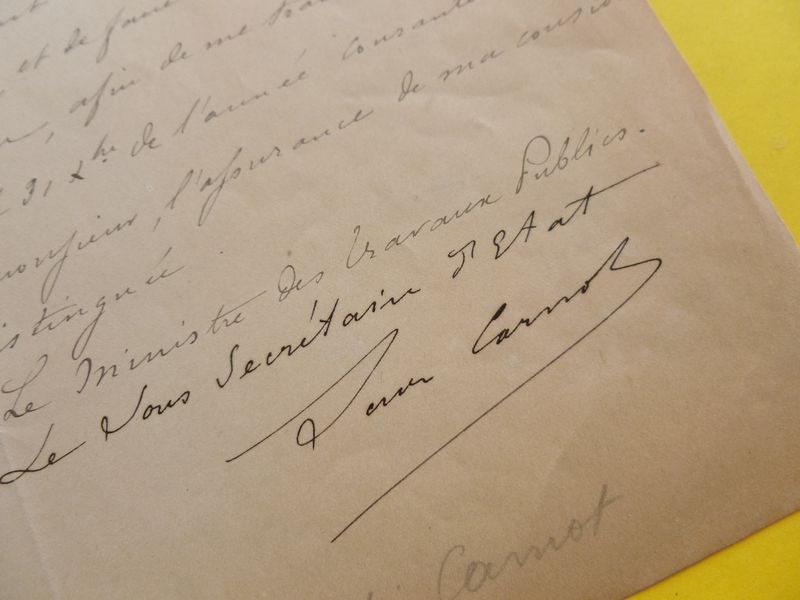 et de faire
, afin de me tra
31 Xbre de l'année courante
monsieur, l'assurance de ma consi
istinguée.
Le Ministre des Travaux Publics.
Le Sous Secrétaire d'Etat
Carnot
Carnot